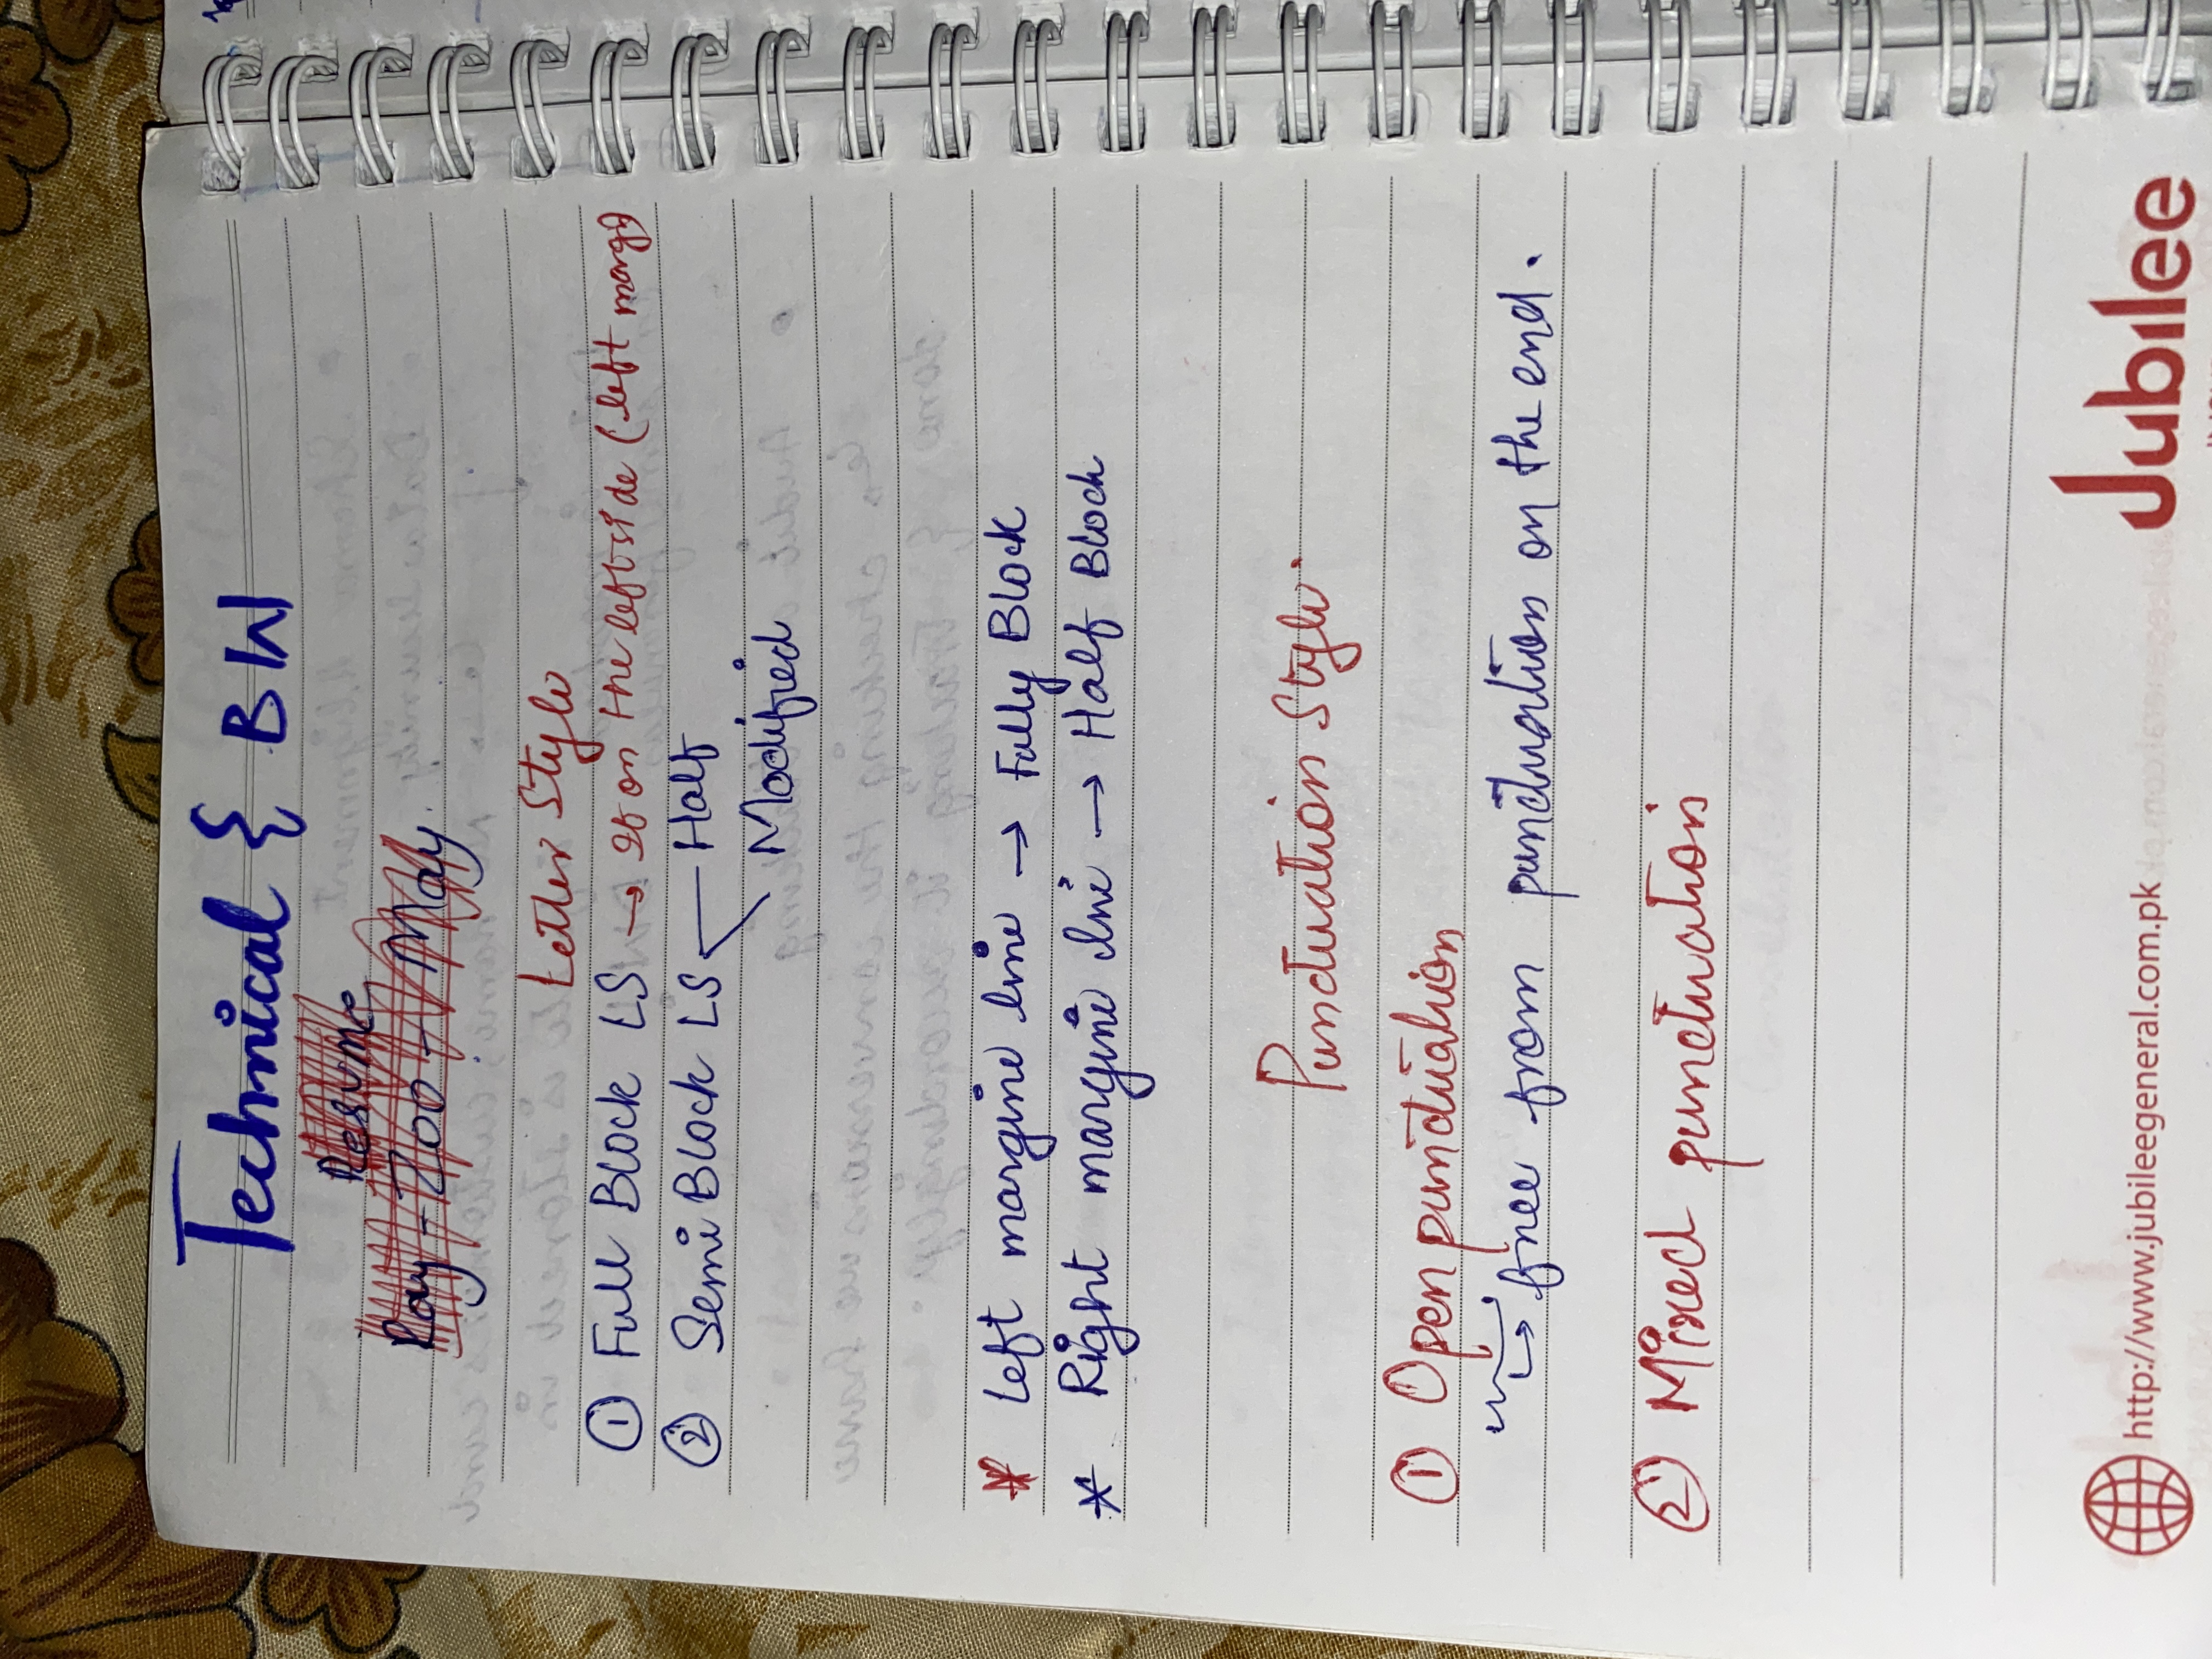 Technical & BW
Resume
Ray-Zoo-May
Letter Style
① Full Block LS → on the left side (left margi)
② Semi Block LS Half
Modified
* Left margine line → Fully Block
* Right margine line → Half Block
Punctuation Style.
① Open punctuation
↳ free from punctuation on the end.
② Mixed punctuation
http://www.jubileegeneral.com.pk
Jubilee